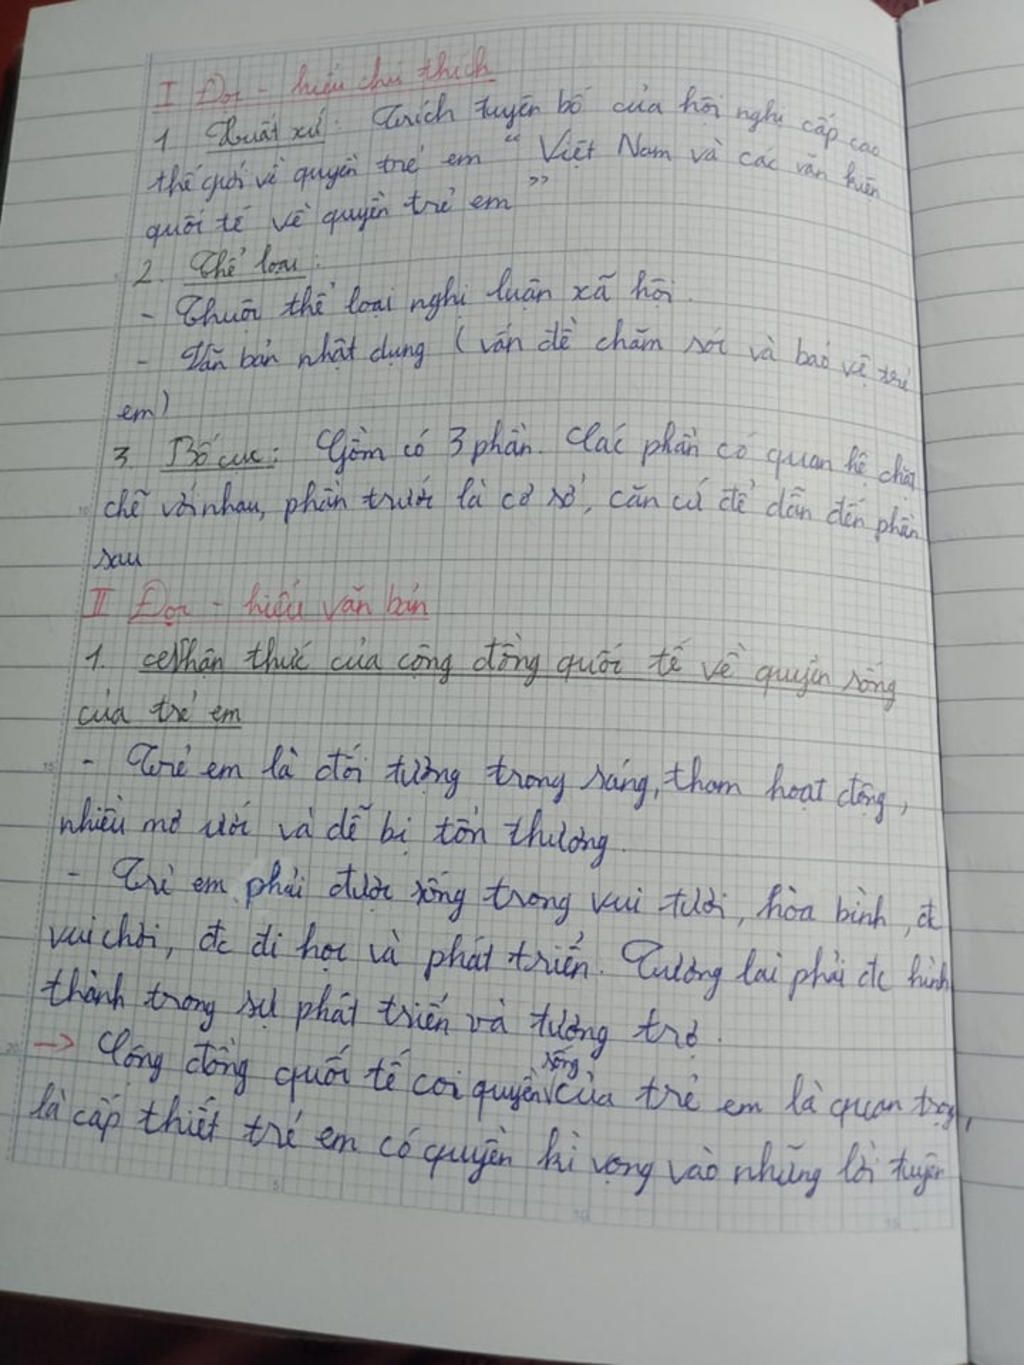 I Đọc - hiểu chú thích
1 Xuất xứ: Trích tuyên bố của hội nghị cấp cao
thế giới về quyền trẻ em "Việt Nam và các văn kiện
quốc tế về quyền trẻ em"
2. Thể loại:
- Thuộc thể loại nghị luận xã hội.
- Văn bản nhật dụng (vấn đề chăm sóc và bảo vệ trẻ
em)
3. Bố cục: Gồm có 3 phần. Các phần có quan hệ chặt
chẽ với nhau, phần trước là cơ sở, căn cứ để dẫn đến phần
sau
II Đọc - hiểu văn bản
1. Nhận thức của cộng đồng quốc tế về quyền sống
của trẻ em
- Trẻ em là đối tượng trong sáng, tham hoạt động,
nhiều mơ ước và dễ bị tổn thương.
- Trẻ em phải được sống trong vui tươi, hòa bình, đc
vui chơi, đc đi học và phát triển. Tương lai phải đc hình
thành trong sự phát triển và tương trợ.
→ Cộng đồng quốc tế coi quyền sống của trẻ em là quan trọng,
là cấp thiết trẻ em có quyền kì vọng vào những lời tuyên